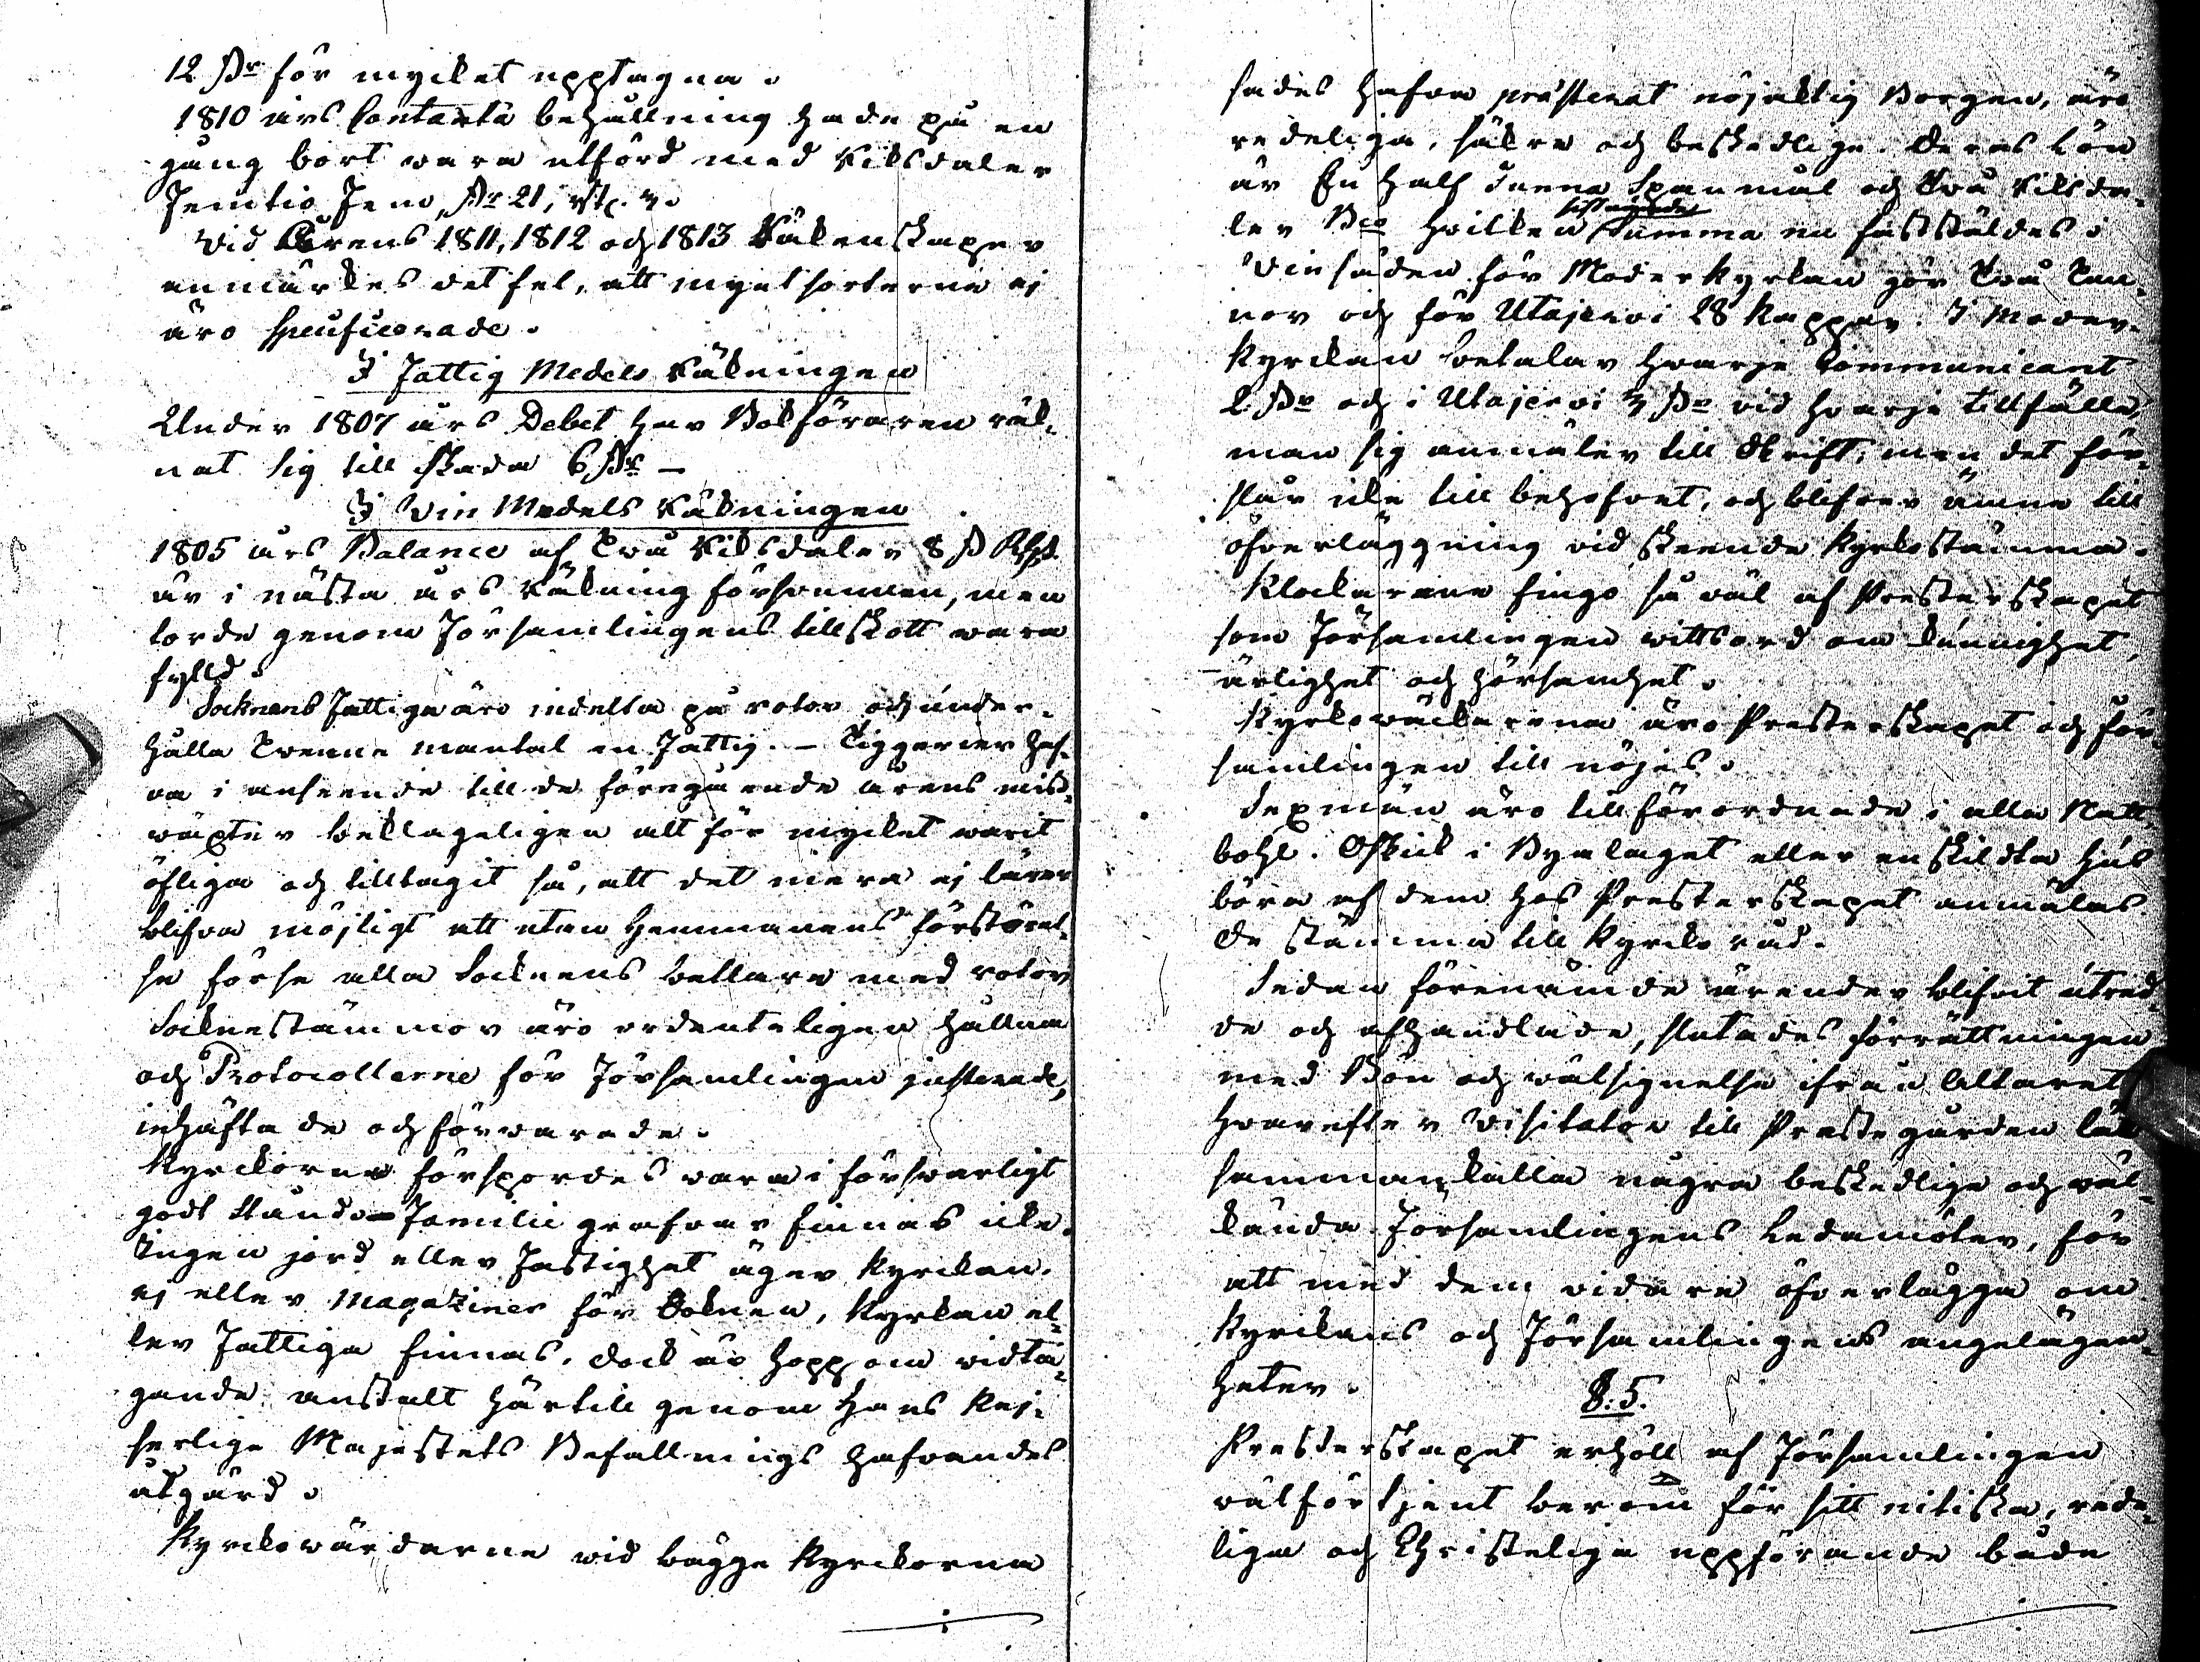 12 ß:r för mycket upptagna.
1810 års Contanta behållning hade på en
gång bort wara utförd med Riksdaler
Femtio Fem, ß:r 21, rst. 3.
Vid Årens 1811, 1812 och 1813 Räkenskaper
anmärktes det fel, att myntsorterne ej
äro specificerade.
I Fattig Medels Räkningen
Under 1807 års Debet har Bokföraren räk-
nat sig till skada 6 ß:r —
I Vin Medels Räkningen
1805 års Balance af Två Riksdaler 8 ß
är i nästa års Räkning försvunnen, men
torde genom Församlingens tillskott wara
fylld.
Socknens Fattiga äro indelta på rotar och under-
hålla Trenne mantal en Fattig. — Tiggerier haf-
va i anseende till de föregående årens miss-
wäxter beklageligen alt för mycket warit
öfliga och tilltagit så, att det mera ej lärer
blifva möjligt att utan Hemmanens förstörel-
se förse alla Socknens bettlare med rotar
Sockne stämmor äro ordenteligen hållna
och Protocollerne för Församlingen justerade,
inhäftade och förwarade.
Kyrckorna förspordes vara i förswarligt
godt stånd — Familie grafvar finnas icke.
Ingen jord eller Fastighet äger Kyrckan.
ej eller Magaziner för Socknen, Kyrkan el-
ler Fattiga finnas, dock är hopp om vidta-
gande anstalt härtill genom Hans Kej-
serlige Majestets Befallnings hafvandes
åtgärd.
Kyrckowärdarne wid bägge Kyrckorna
sades hafva præsterat nöjaktig Borgen, äro
redeliga, säkre och beskedlige. Deras Lön
är En half Tunna Spanmål och Två Riksda-
ler B:co hvilken Summa nu fastställdes.
Vinsåden för Moderkyrkan gör Två Tun-
nor och för Utajerwi 28 Kappar. I Moder-
Kyrckan betalar hvarje Communicant
2 ß:r och i Utajerwi 3 ß:r vid hvarje tillfälle,
man sig anmäler till Skrift, men det för-
slår icke till behofvet, och blifver ämne till
öfverläggning vid skeende Kyrkostämma.
Klockarena fingo så väl af Presterskapet
som Församlingen wittsord om kunnighet,
ärlighet och hörsamhet.
Kyrkowäcktarena äro Presterskapet och För-
samlingen till nöjes.
Sexmän äro till förordnade i alla Natt-
bohl. Oskick i Byalaget eller enskildta hus
böra af dem hos Presterskapet anmälas.
De stämma till Kyrcko råd.
Sedan förenämde ärender blifvit utred-
de och afhandlade, slutades förrättningen
med Bön och wälsignelse ifrån Altaret
hvarefter Visitator till Prestegården lät
sammankalla några beskedliga och väl-
kända Församlingens Ledamöter, för
att med dem vidare öfverlägga om
Kyrckans och Församlingens angelägen-
heter.
§: 5.
Presterskapet erhöll af Församlingen
välförtjent beröm för sitt nitiska, rede-
liga och Christeliga uppförande både